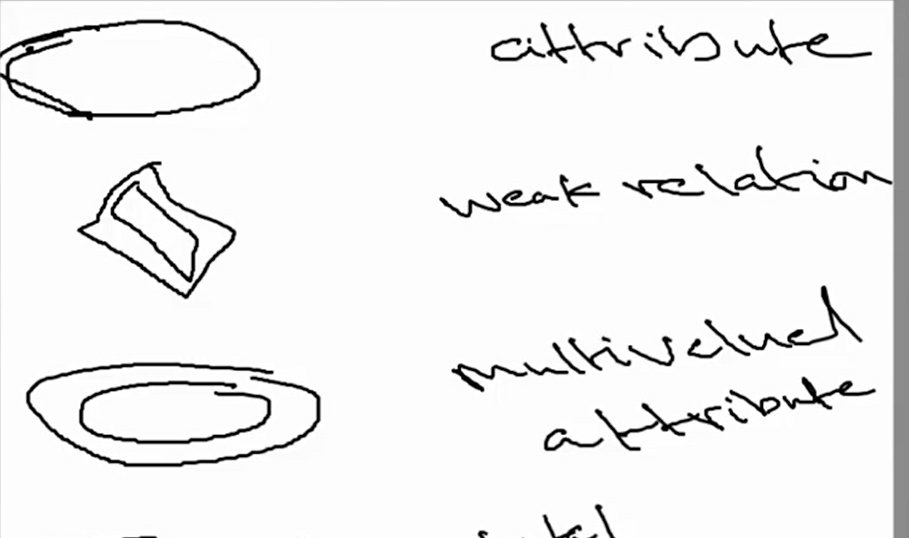 attribute
weak relation
multivalued
attribute